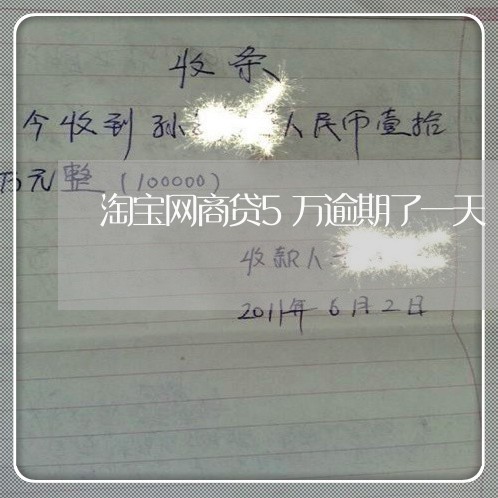 收条
今收到孙 人民币壹拾
万元整(100000)
淘宝网商贷5万逾期了一天
收款人
2011年6月2日